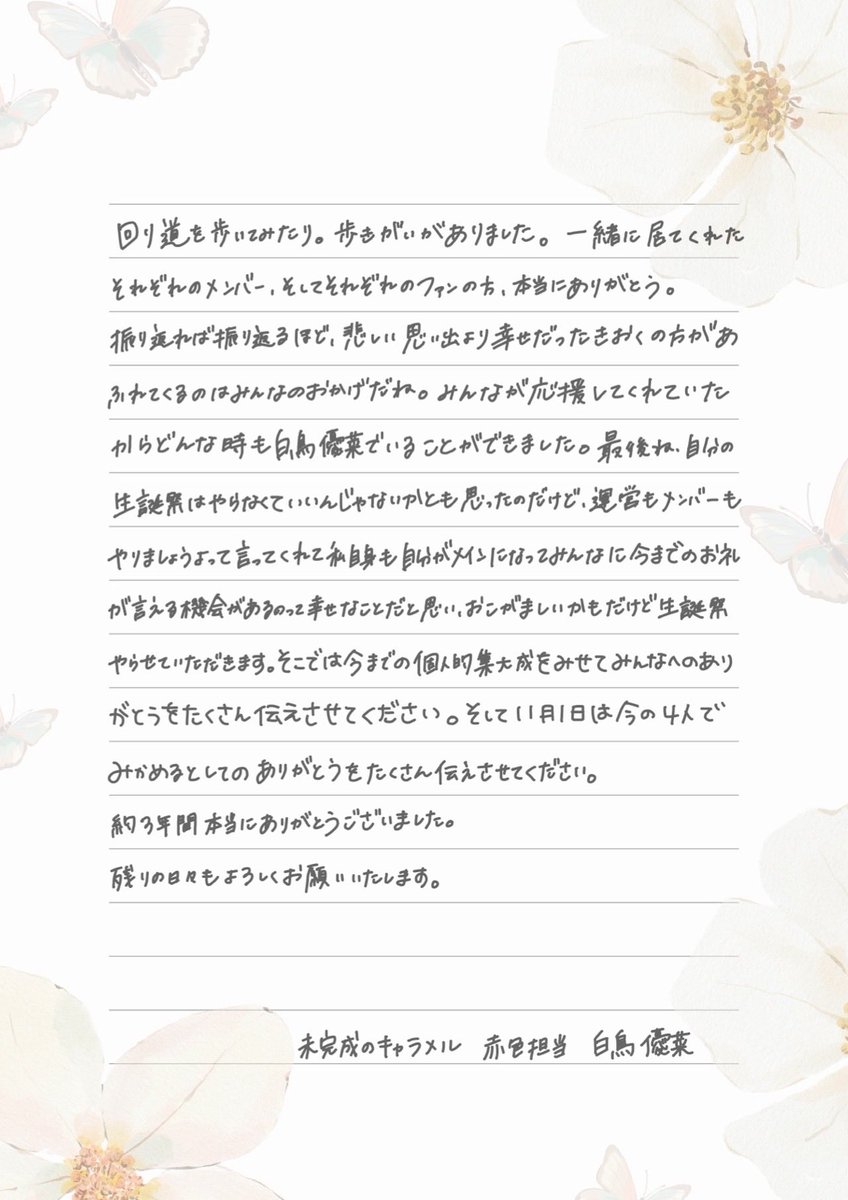 回り道を歩いてみたり。歩きがいがありました。一緒に居てくれた
それぞれのメンバー、そしてそれぞれのファンの方、本当にありがとう。
振り返れば振り返るほど、悲しい思い出より幸せだったきおくの方があ
ふれてくるのはみんなのおかげだね。みんなが応援してくれていた
からどんな時も白鳥優菜でいることができました。最後ね、自分の
生誕祭はやらなくていいんじゃないかとも思ったのだけど、運営もメンバーも
やりましょうよって言ってくれて私自身も自分がメインになってみんなに今までのお礼
が言える機会があるのって幸せなことだと思い、おこがましいかもだけど生誕祭
やらせていただきます。そこでは今までの個人的集大成をみせてみんなへのあり
がとうをたくさん伝えさせてください。そして11月1日は今の4人で
みかめるとしてのありがとうをたくさん伝えさせてください。
約3年間本当にありがとうございました。
残りの日々もよろしくお願いいたします。
未完成のキャラメル 赤色担当 白鳥優菜